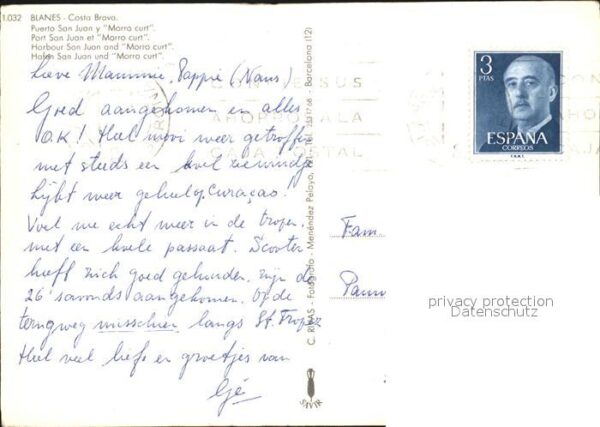 1.032 BLANES - Costa Brava.
Puerto San Juan y "Morro curt".
Port San Juan et "Morro curt".
Harbour San Juan and "Morro curt".
Hafen San Juan und "Morro curt".
Lieve Mammie, Pappie (, Nans)
Goed aangekomen en alles
O.K! Heel mooi weer getroffen
met steeds een koel zeewindje
Lijkt weer geheel op Curaçao!
Voel me echt weer in de tropen
met een koele passaat. Scooter
heeft zich goed gehouden, zijn de
26' s'avonds aangekomen. Op de
terugweg misschien langs St. Tropez
Heel veel liefs en groetjes van
Gé
C. RIBAS - Fotógrafo - Menéndez Pelayo, - Barcelona (12)
SAVIR
CON SUS
AHORROS A LA
CAJA POSTAL
3
PTAS
ESPAÑA
CORREOS
F.N.M.T.
CON
AHORRO
CAJA
Fam
privacy protection
Datenschutz